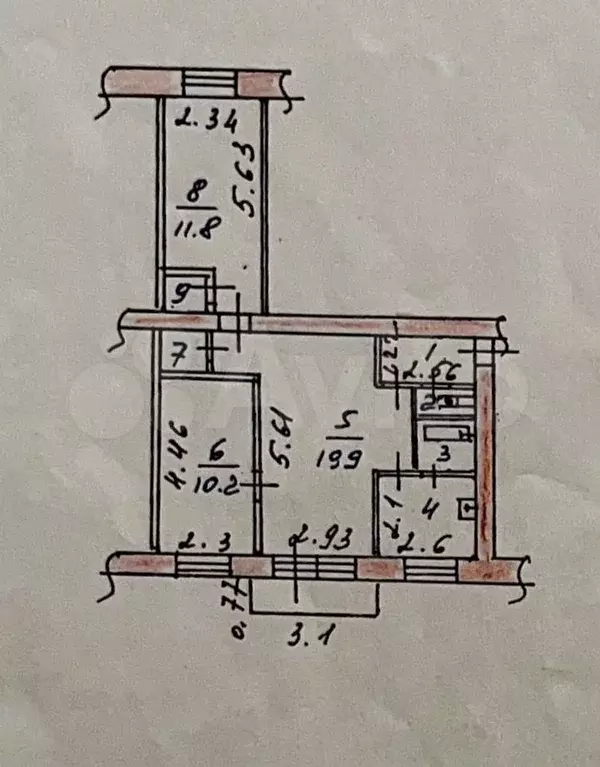 2.34
5.63
8
11.8
9
7
1.27
1
2.66
2
4.46
6
10.2
5.61
5
19.9
3
2.1
4
2.3
2.93
2.6
0.77
3.1
Avito